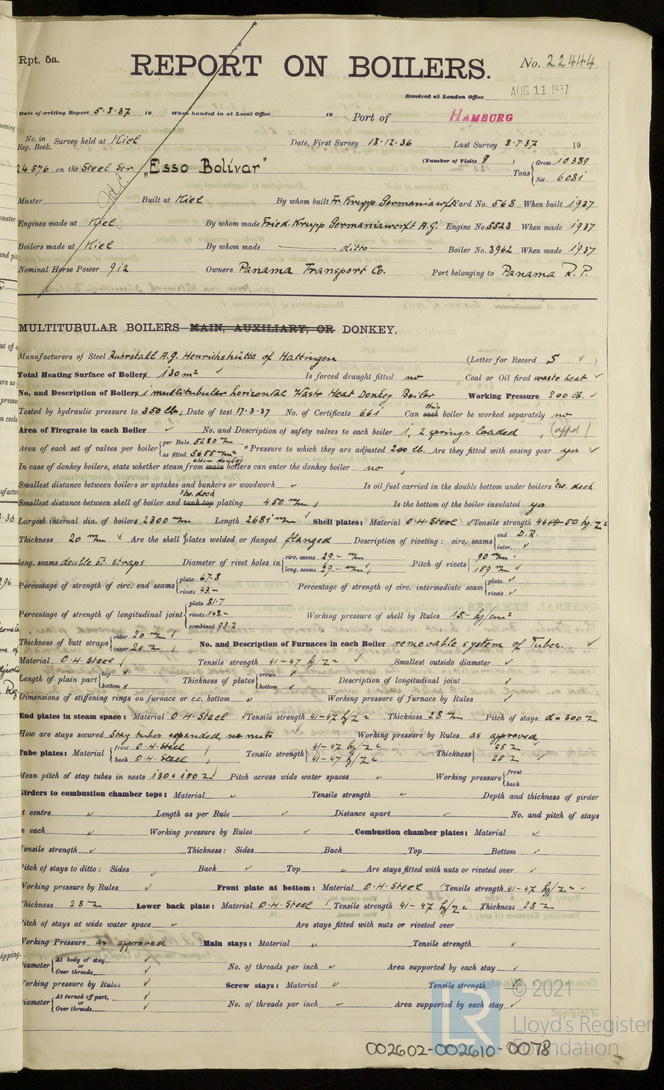 Rpt. 5a.
REPORT ON BOILERS.
No. 22444
Received at London Office AUG 11 1937
Date of writing Report 5.8.37 19 When handed in at Local Office 19 Port of HAMBURG
No. in Reg. Book. Survey held at Kiel Date, First Survey 18.12.36 Last Survey 8.7.37 19
24576 on the Steel Scr "Esso Bolívar" (Number of Visits 9 ) Tons { Gross 10389 Net 6081
Master Built at Kiel By whom built Fr. Krupp Germaniawerft Yard No. 568 When built 1937
Engines made at Kiel By whom made Fried. Krupp Germaniawerft A.G. Engine No. 5523 When made 1937
Boilers made at Kiel By whom made ditto Boiler No. 3962 When made 1937
Nominal Horse Power 912 Owners Panama Transport Co. Port belonging to Panama R.P.
MULTITUBULAR BOILERS MAIN, AUXILIARY, OR DONKEY.
Manufacturers of Steel Ruhrstahl A.G. Henrichshütte of Hattingen (Letter for Record S ✓ )
Total Heating Surface of Boilers 130 m² ✓ Is forced draught fitted no Coal or Oil fired waste heat ✓
No. and Description of Boilers 1 multitubular horizontal Waste Heat Donkey Boiler Working Pressure 200 lb. ✓
Tested by hydraulic pressure to 350 lbs. Date of test 17.3.37 No. of Certificate 661 Can each this boiler be worked separately no
Area of Firegrate in each Boiler ✓ No. and Description of safety valves to each boiler 1, 2 springs loaded
Area of each set of valves per boiler { per Rule 5280 as fitted 5655 Pressure to which they are adjusted 200 lb. Are they fitted with easing gear yes ✓
In case of donkey boilers, state whether steam from main boilers can enter the donkey boiler no ✓
Smallest distance between boilers or uptakes and bunkers or woodwork ✓ Is oil fuel carried in the double bottom under boilers
Smallest distance between shell of boiler and tank top plating 450 mm Is the bottom of the boiler insulated yes
Largest internal dia. of boilers 2300 mm Length 2681 mm Shell plates: Material O.H. Steel ✓ Tensile strength
Thickness 20 mm ✓ Are the shell plates welded or flanged flanged Description of riveting: circ. seams { end D.R. inter. ✓
long. seams double b. straps Diameter of rivet holes in { circ. seams 29.- mm long. seams 29.- mm Pitch of rivets { 90 mm 189 mm ✓
Percentage of strength of circ. end seams { plate 67.8 rivets 43.- Percentage of strength of circ. intermediate seam { plate ✓ rivets ✓
Percentage of strength of longitudinal joint { plate 81.7 rivets 148.- combined 93.2 Working pressure of shell by Rules 15.- kg/cm²
Thickness of butt straps { outer 20 mm inner 20 mm No. and Description of Furnaces in each Boiler removable system of Tubes. ✓
Material O.H. Steel Tensile strength 41-47 kg/² Smallest outside diameter ✓
Length of plain part { top ✓ bottom ✓ Thickness of plates { crown bottom ✓ Description of longitudinal joint ✓
Dimensions of stiffening rings on furnace or c.c. bottom ✓ Working pressure of Furnace by Rules ✓
End plates in steam space: Material O.H. Steel Tensile strength 41-47 kg/² Thickness 25 Pitch of stays d=300
How are stays secured Stay tubes expanded, no nuts Working pressure by Rules as approved
Tube plates: Material { front O.H. Steel back O.H. Steel Tensile strength { 41-47 kg/² 41-47 kg/² Thickness { 25 25 ✓
Mean pitch of stay tubes in nests 130 x 180 Pitch across wide water spaces ✓ Working pressure { front back
Girders to combustion chamber tops: Material ✓ Tensile strength ✓ Depth and thickness of girder
at centre ✓ Length as per Rule ✓ Distance apart ✓ No. and pitch of stays
in each ✓ Working pressure by Rules ✓ Combustion chamber plates: Material ✓
Tensile strength ✓ Thickness: Sides Back Top Bottom ✓
Pitch of stays to ditto: Sides Back ✓ Top ✓ Are stays fitted with nuts or riveted over ✓
Working pressure by Rules ✓ Front plate at bottom: Material O.H. Steel Tensile strength 41-47 kg/²
Thickness 25 Lower back plate: Material O.H. Steel Tensile strength 41-47 kg/² Thickness 25
Pitch of stays at wide water space ✓ Are stays fitted with nuts or riveted over ✓
Working Pressure as approved Main stays: Material ✓ Tensile strength ✓
Diameter { At body of stay, or Over threads ✓ No. of threads per inch ✓ Area supported by each stay ✓
Working pressure by Rules ✓ Screw stays: Material ✓ Tensile strength ✓
Diameter { At turned off part, or Over threads ✓ No. of threads per inch ✓ Area supported by each stay ✓
© 2021
Lloyd's Register
Foundation
LR
002602-002610-0078